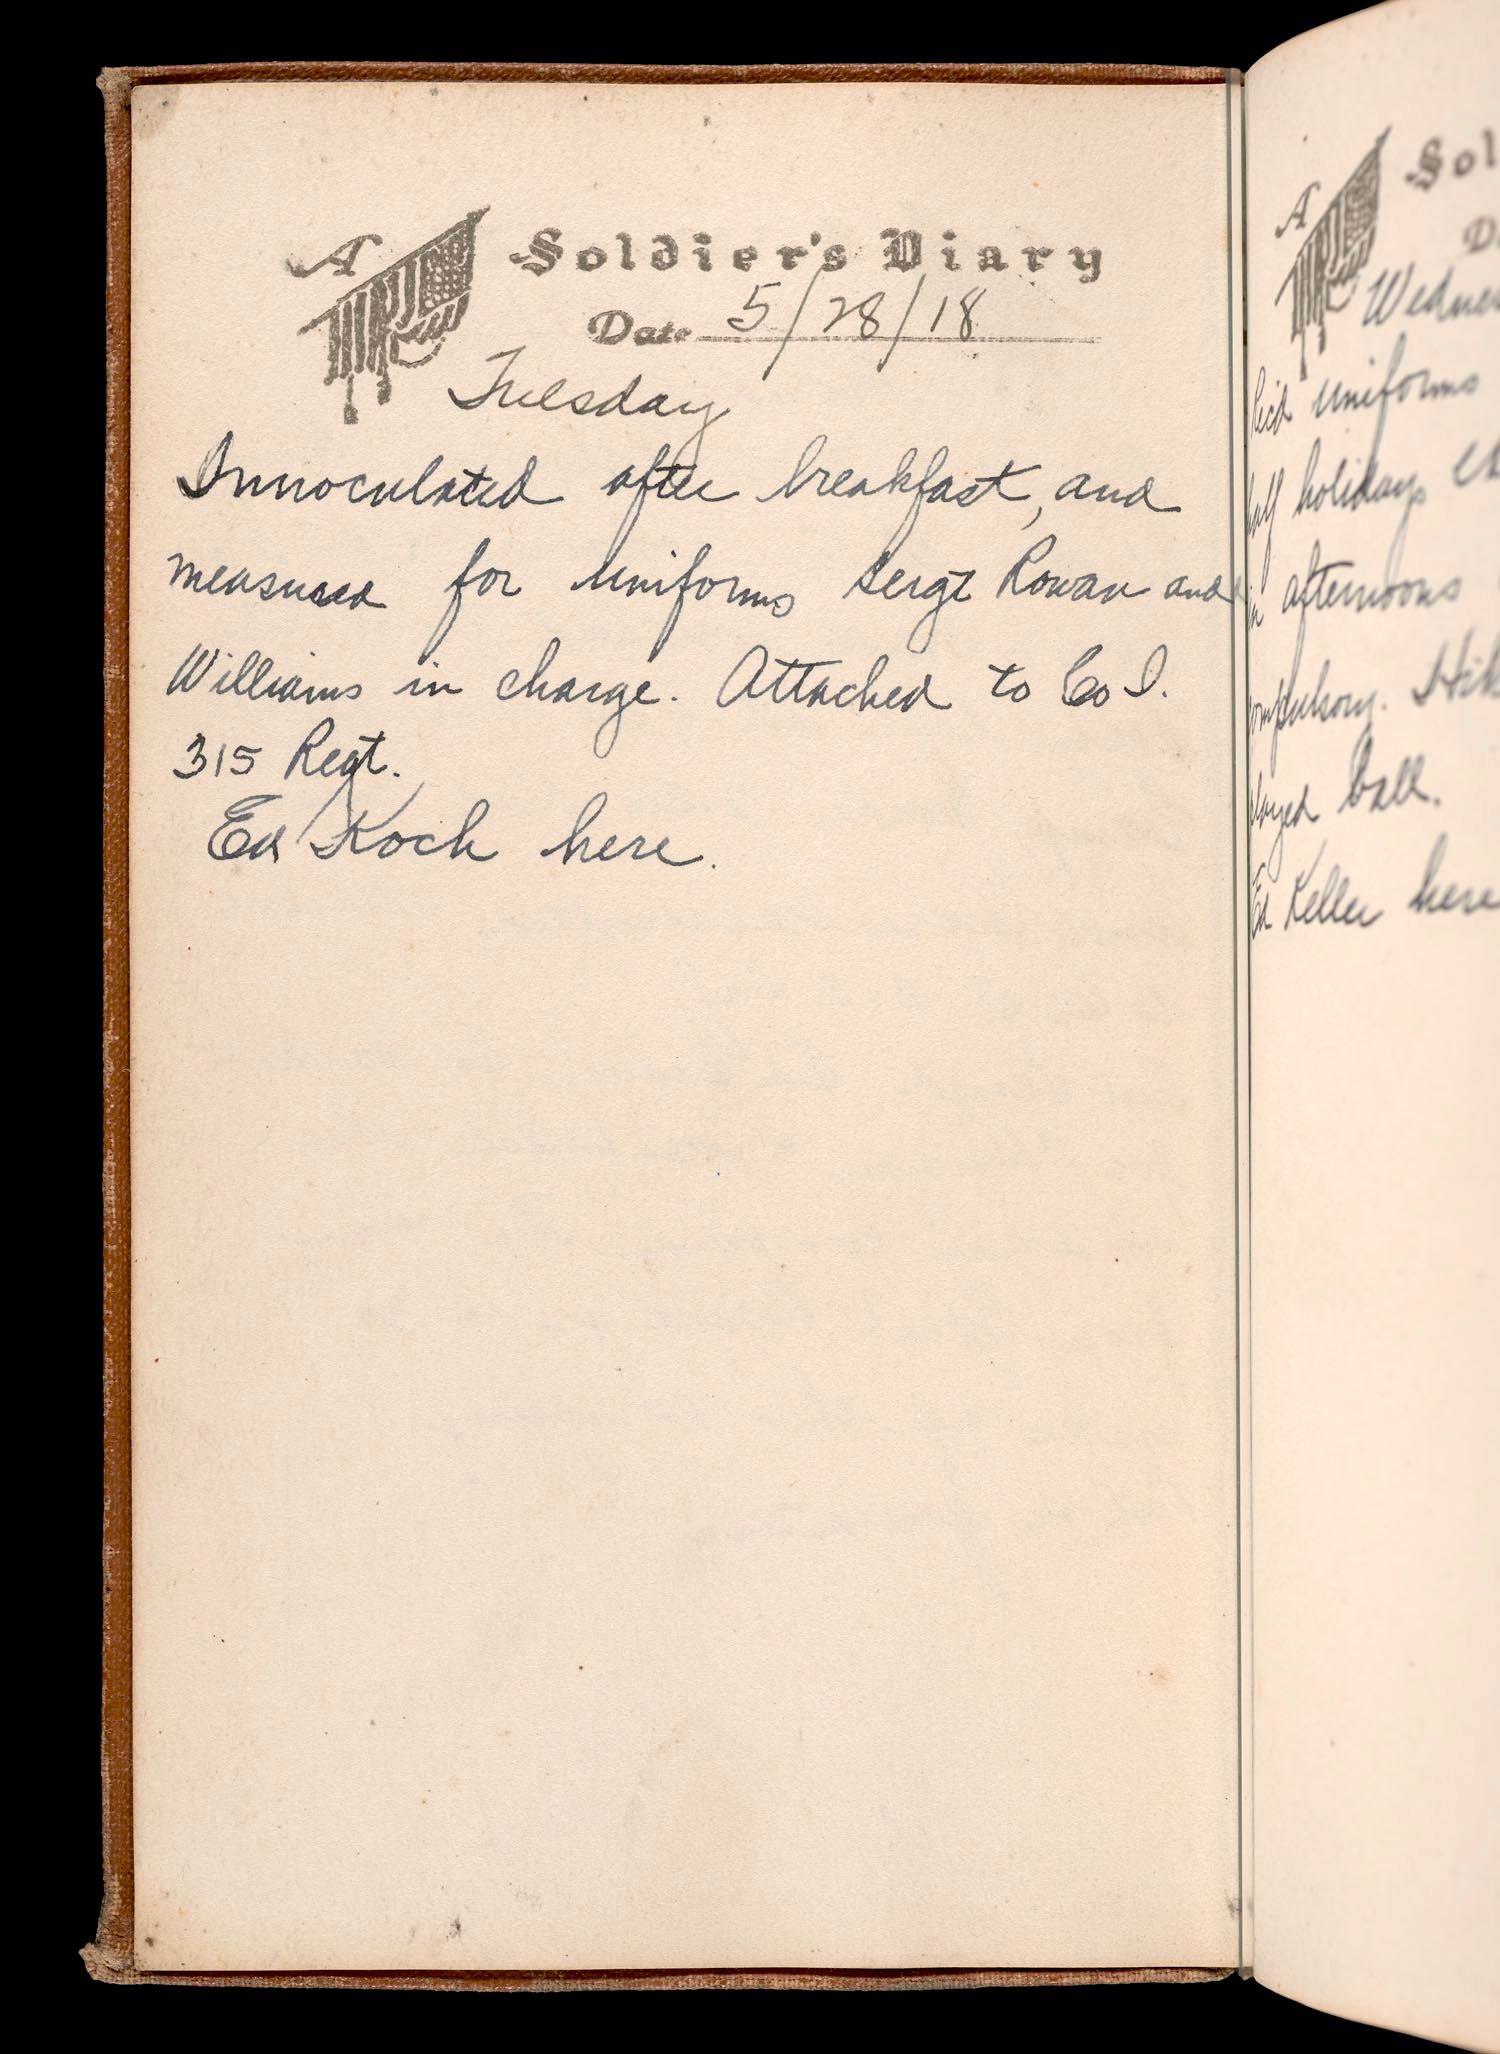 A Soldier's Diary
Date 5/28/18
Tuesday
Innoculated after breakfast, and
measured for uniforms Sergt Rowan and
Williams in charge. Attached to Co I.
315 Regt.
Ed Koch here.
A Sol
D
Wednes
Rec'd uniforms
half holidays
in afternoons
compulsory. Hik
played ball.
Ed Keller here